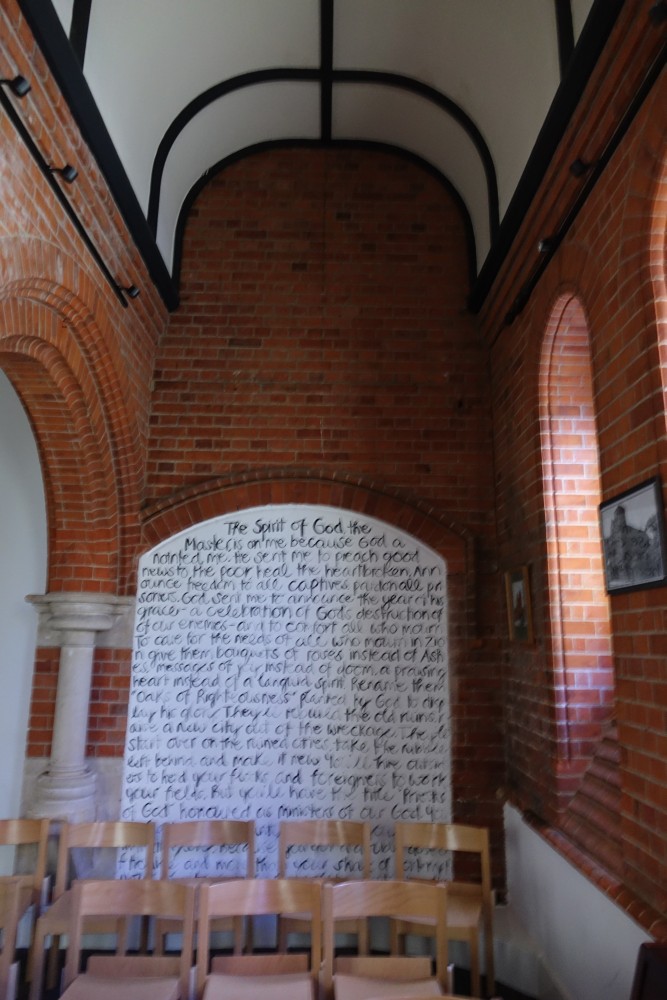 The Spirit of God, the
Master, is on me because God a
nointed me. He sent me to preach good
news to the poor, heal the heartbroken, Ann
ounce freedom to all captives, pardon all pri
soners. God sent me to announce the year of his
grace - a celebration of God's destruction of
of our enemies - and to comfort all who mourn
To care for the needs of all who mourn in Zio
n give them bouquets of roses instead of Ash
es, messages of joy instead of doom, a praising
heart instead of a languid spirit. Rename them
"Oaks of Righteousness" planted by God to disp
lay his glory. They'll rebuild the old ruins, r
aise a new city out of the wreckage. They'll
start over on the ruined cities, take the rubble
left behind and make it new. You'll hire outsid
ers to herd your flocks and foreigners to work
your fields, But you'll have the title "Priests
of God" honoured as Ministers of our God. Yo
and